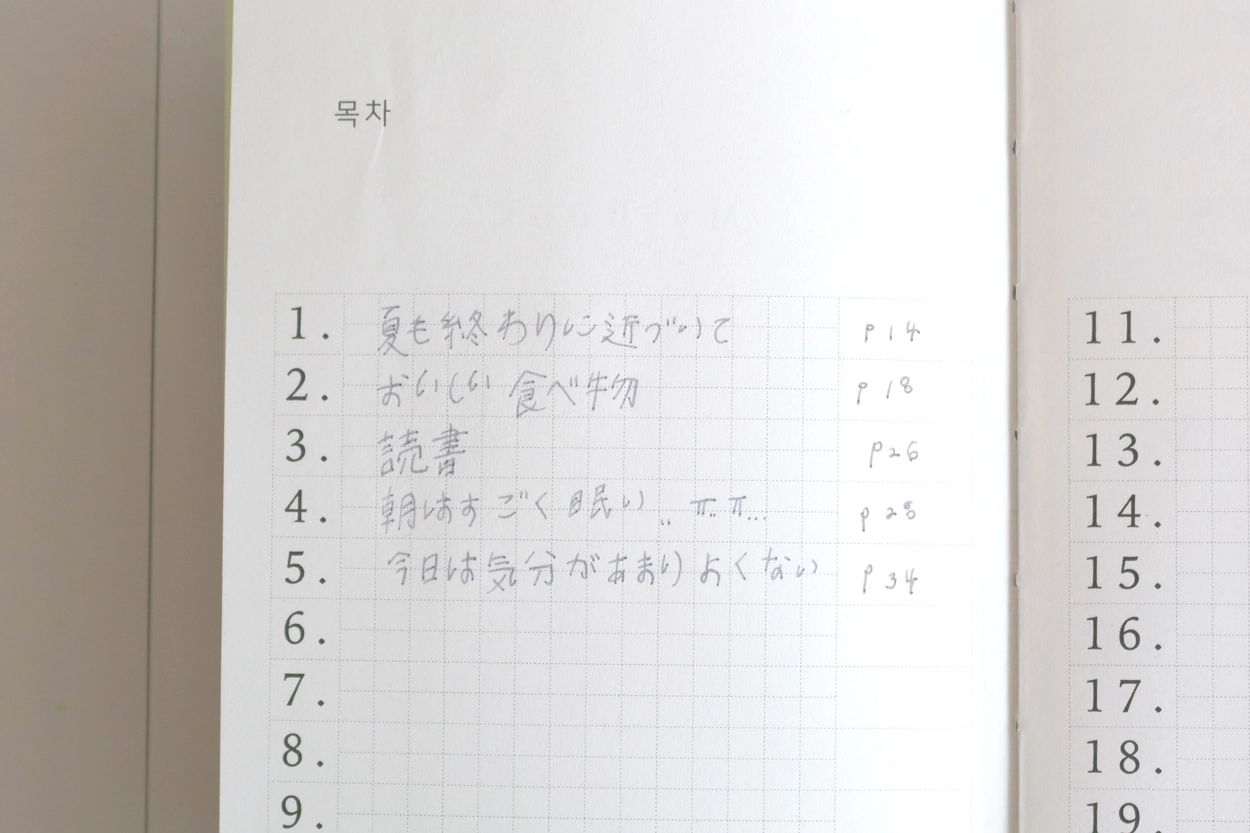 목차
1. 夏も終わりに近づいて p14
2. おいしい食べ物 p18
3. 読書 p26
4. 朝はすごく眠い.. ㅠㅠ... p28
5. 今日は気分があまりよくない p34
6.
7.
8.
9.
11.
12.
13.
14.
15.
16.
17.
18.
19.